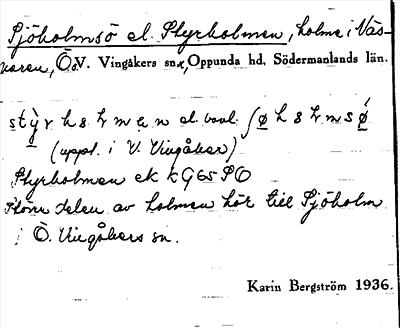 Sjöholmsö el. Styrholmen, holme i Väs-
varen, Ö. o. V. Vingåkers snr, Oppunda hd, Södermanlands län.
(uppt. i V. Vingåker)
Styrholmen ek kG65SO
Större delen av holmen hör till Sjöholm
i Ö. Vingåkers sn.
Karin Bergström 1936.